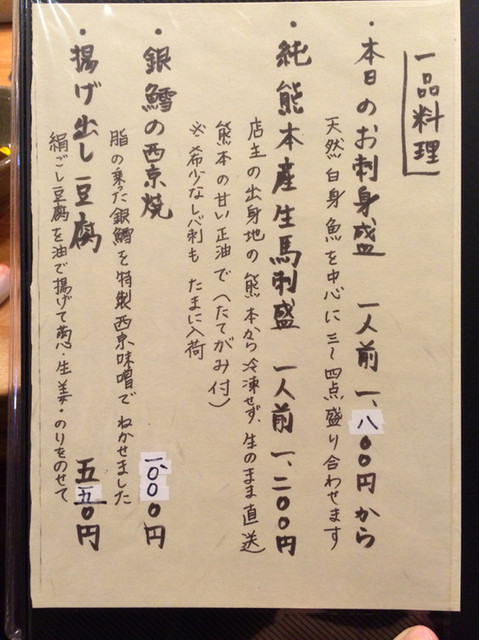 一品料理
・本日のお刺身盛 一人前 一、八〇〇円から
天然白身魚を中心に三〜四点盛り合わせます
・純熊本産生馬刺盛 一人前 一、二〇〇円
店主の出身地の熊本から冷凍せず、生のまま直送
熊本の甘い正油で(たてがみ付)
※希少なレバ刺も たまに入荷
・銀鱈の西京焼 一、〇〇〇円
脂の乗った銀鱈を特製西京味噌でねかせました
・揚げ出し豆腐 五五〇円
絹ごし豆腐を油で揚げて葱・生姜・のりをのせて